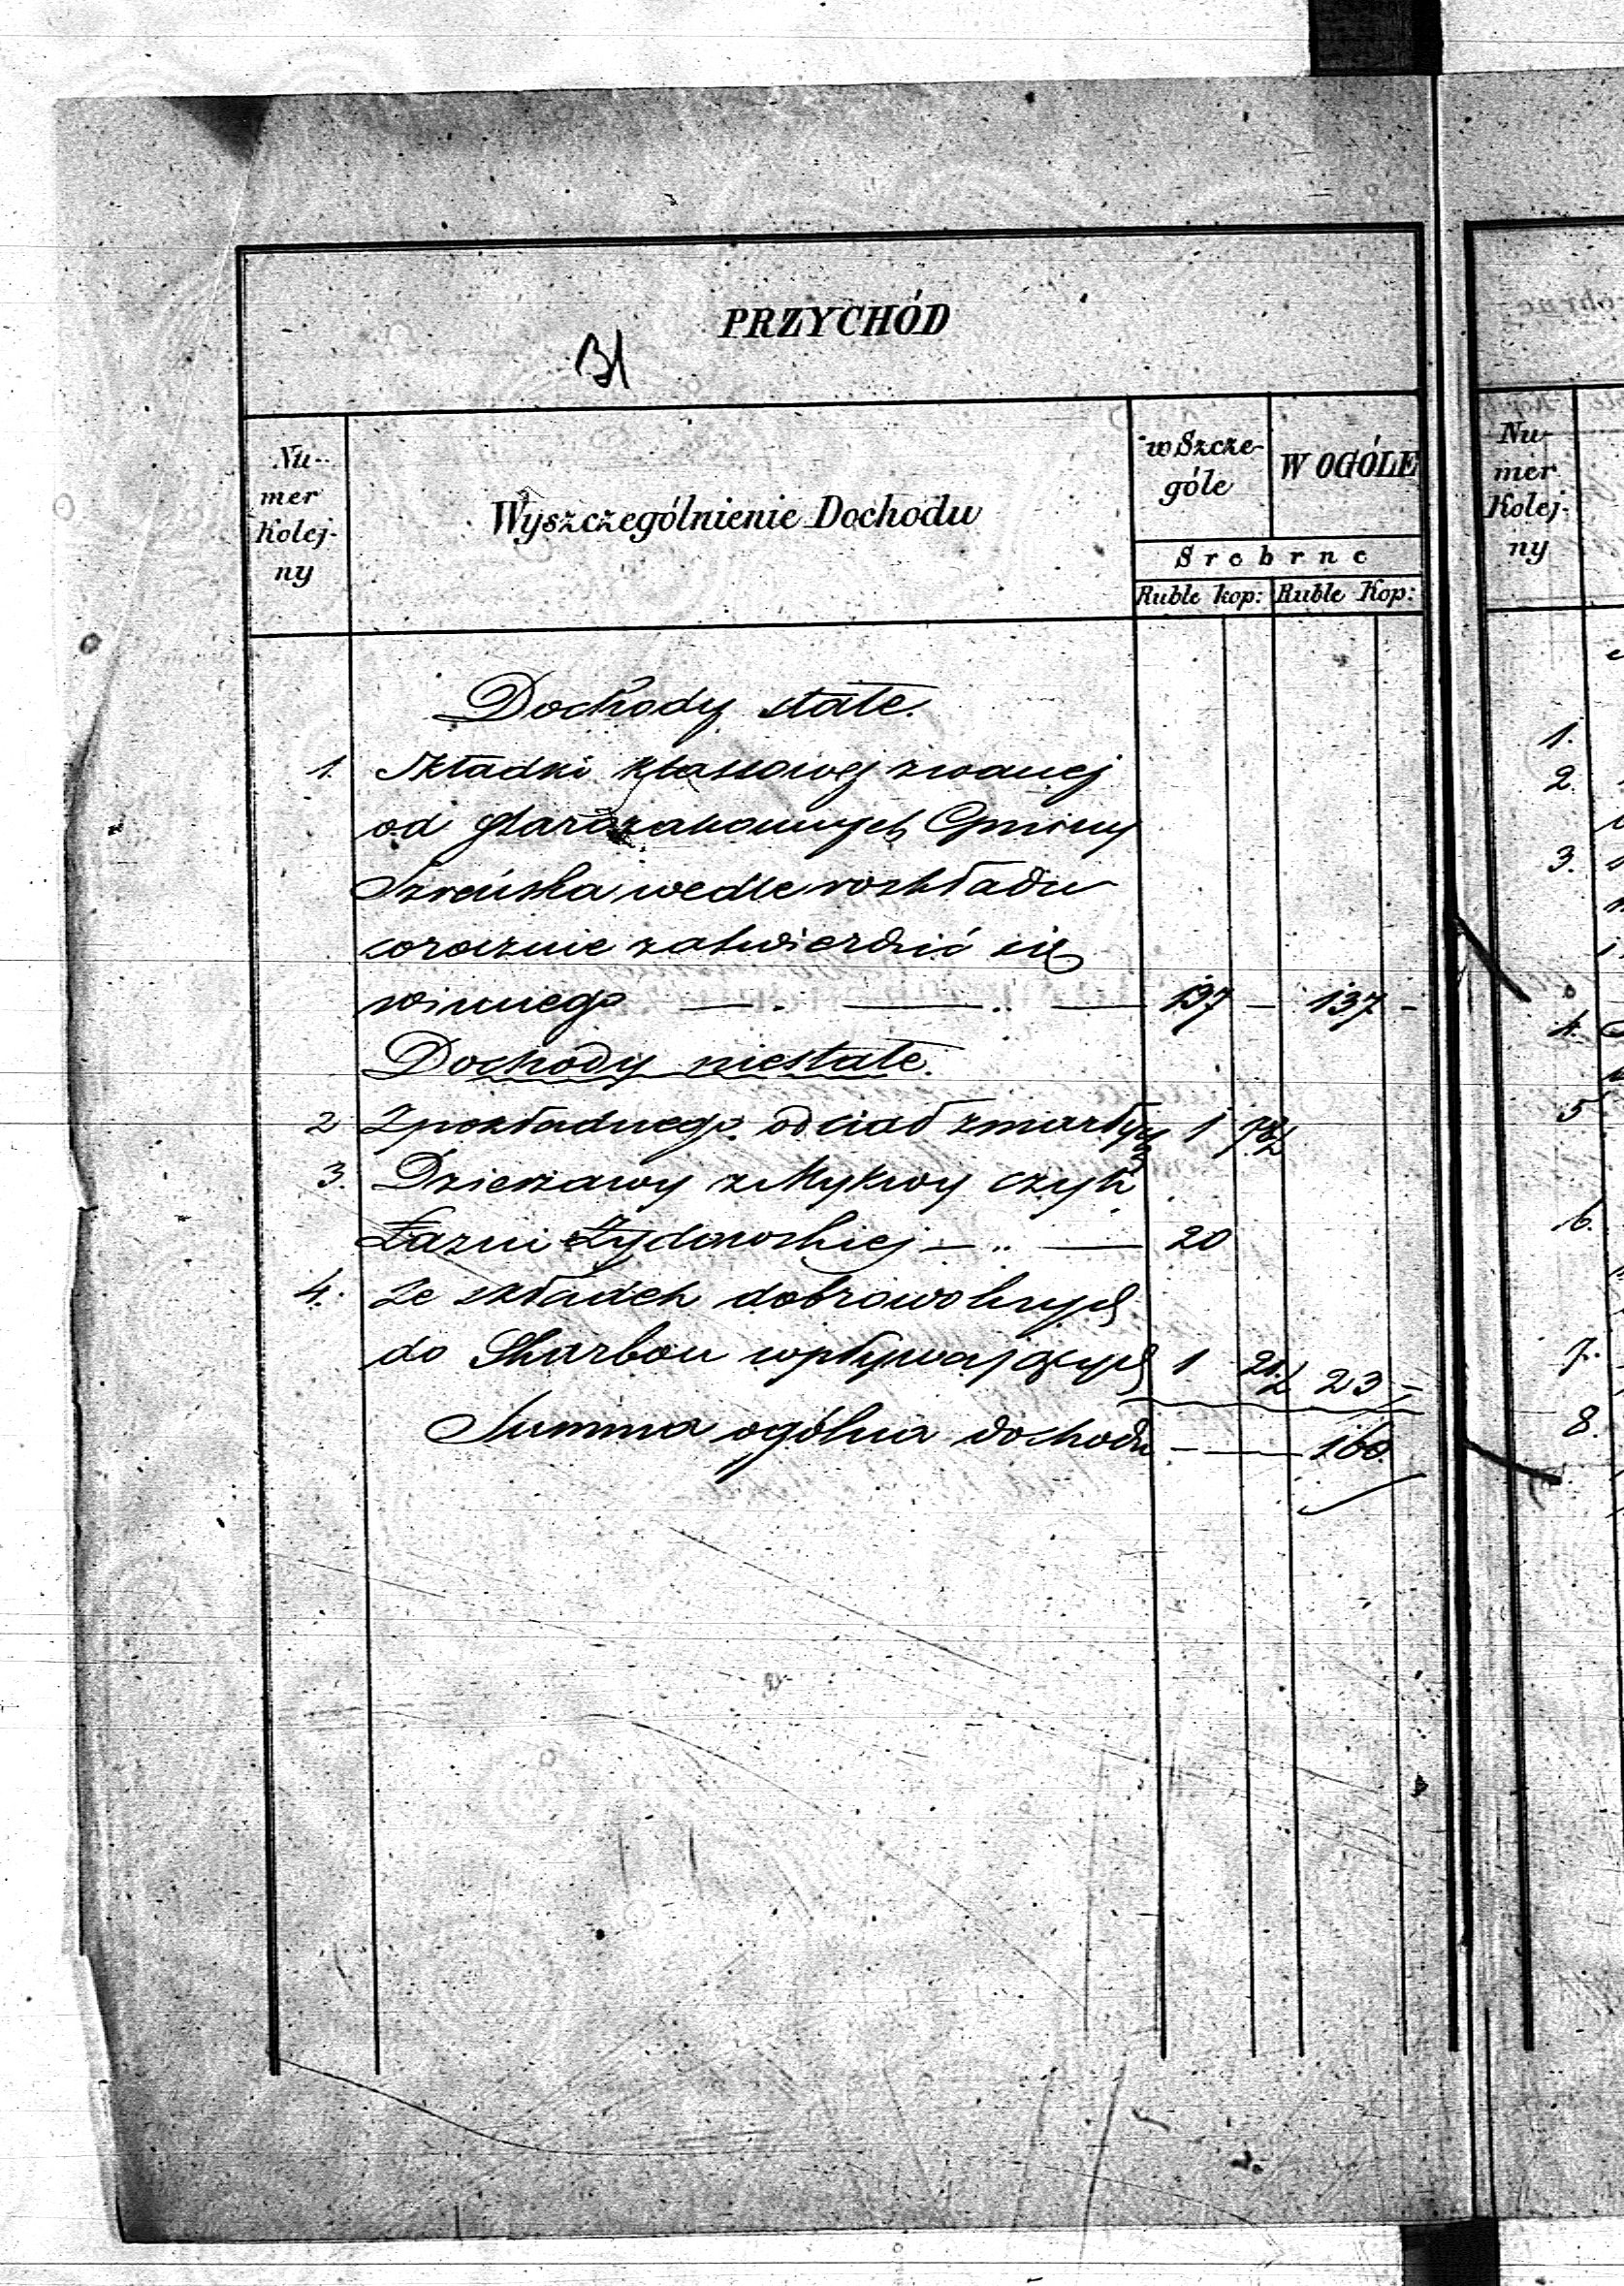 PRZYCHÓD
Nu-
mer
Kolej-
ny
Wyszczególnienie Dochodu
w Szcze-
góle
W OGÓLE
Srebrne
Ruble kop: Ruble Kop:
Dochody stałe.
1. Składki klassowej zwanej
od starozakonnych Gminy
Szreńska wedle rozkładu
corocznie zatwierdzić się
winnego — . — .. — 137 — 137 -
Dochody niestałe.
2 Z pokładnego od ciał zmarłych 1 78½
3. Dzierzawy z Mykwy czyli
Łazni Żydowskiej — .. — 20
4. Ze składek dobrowolnych
do Skarbon wpływających 1 21½ 23 -
Summa ogólna dochodu - — 160.
Nu-
mer
Kolej-
ny
1.
2.
3.
4.
5
6.
7.
8.